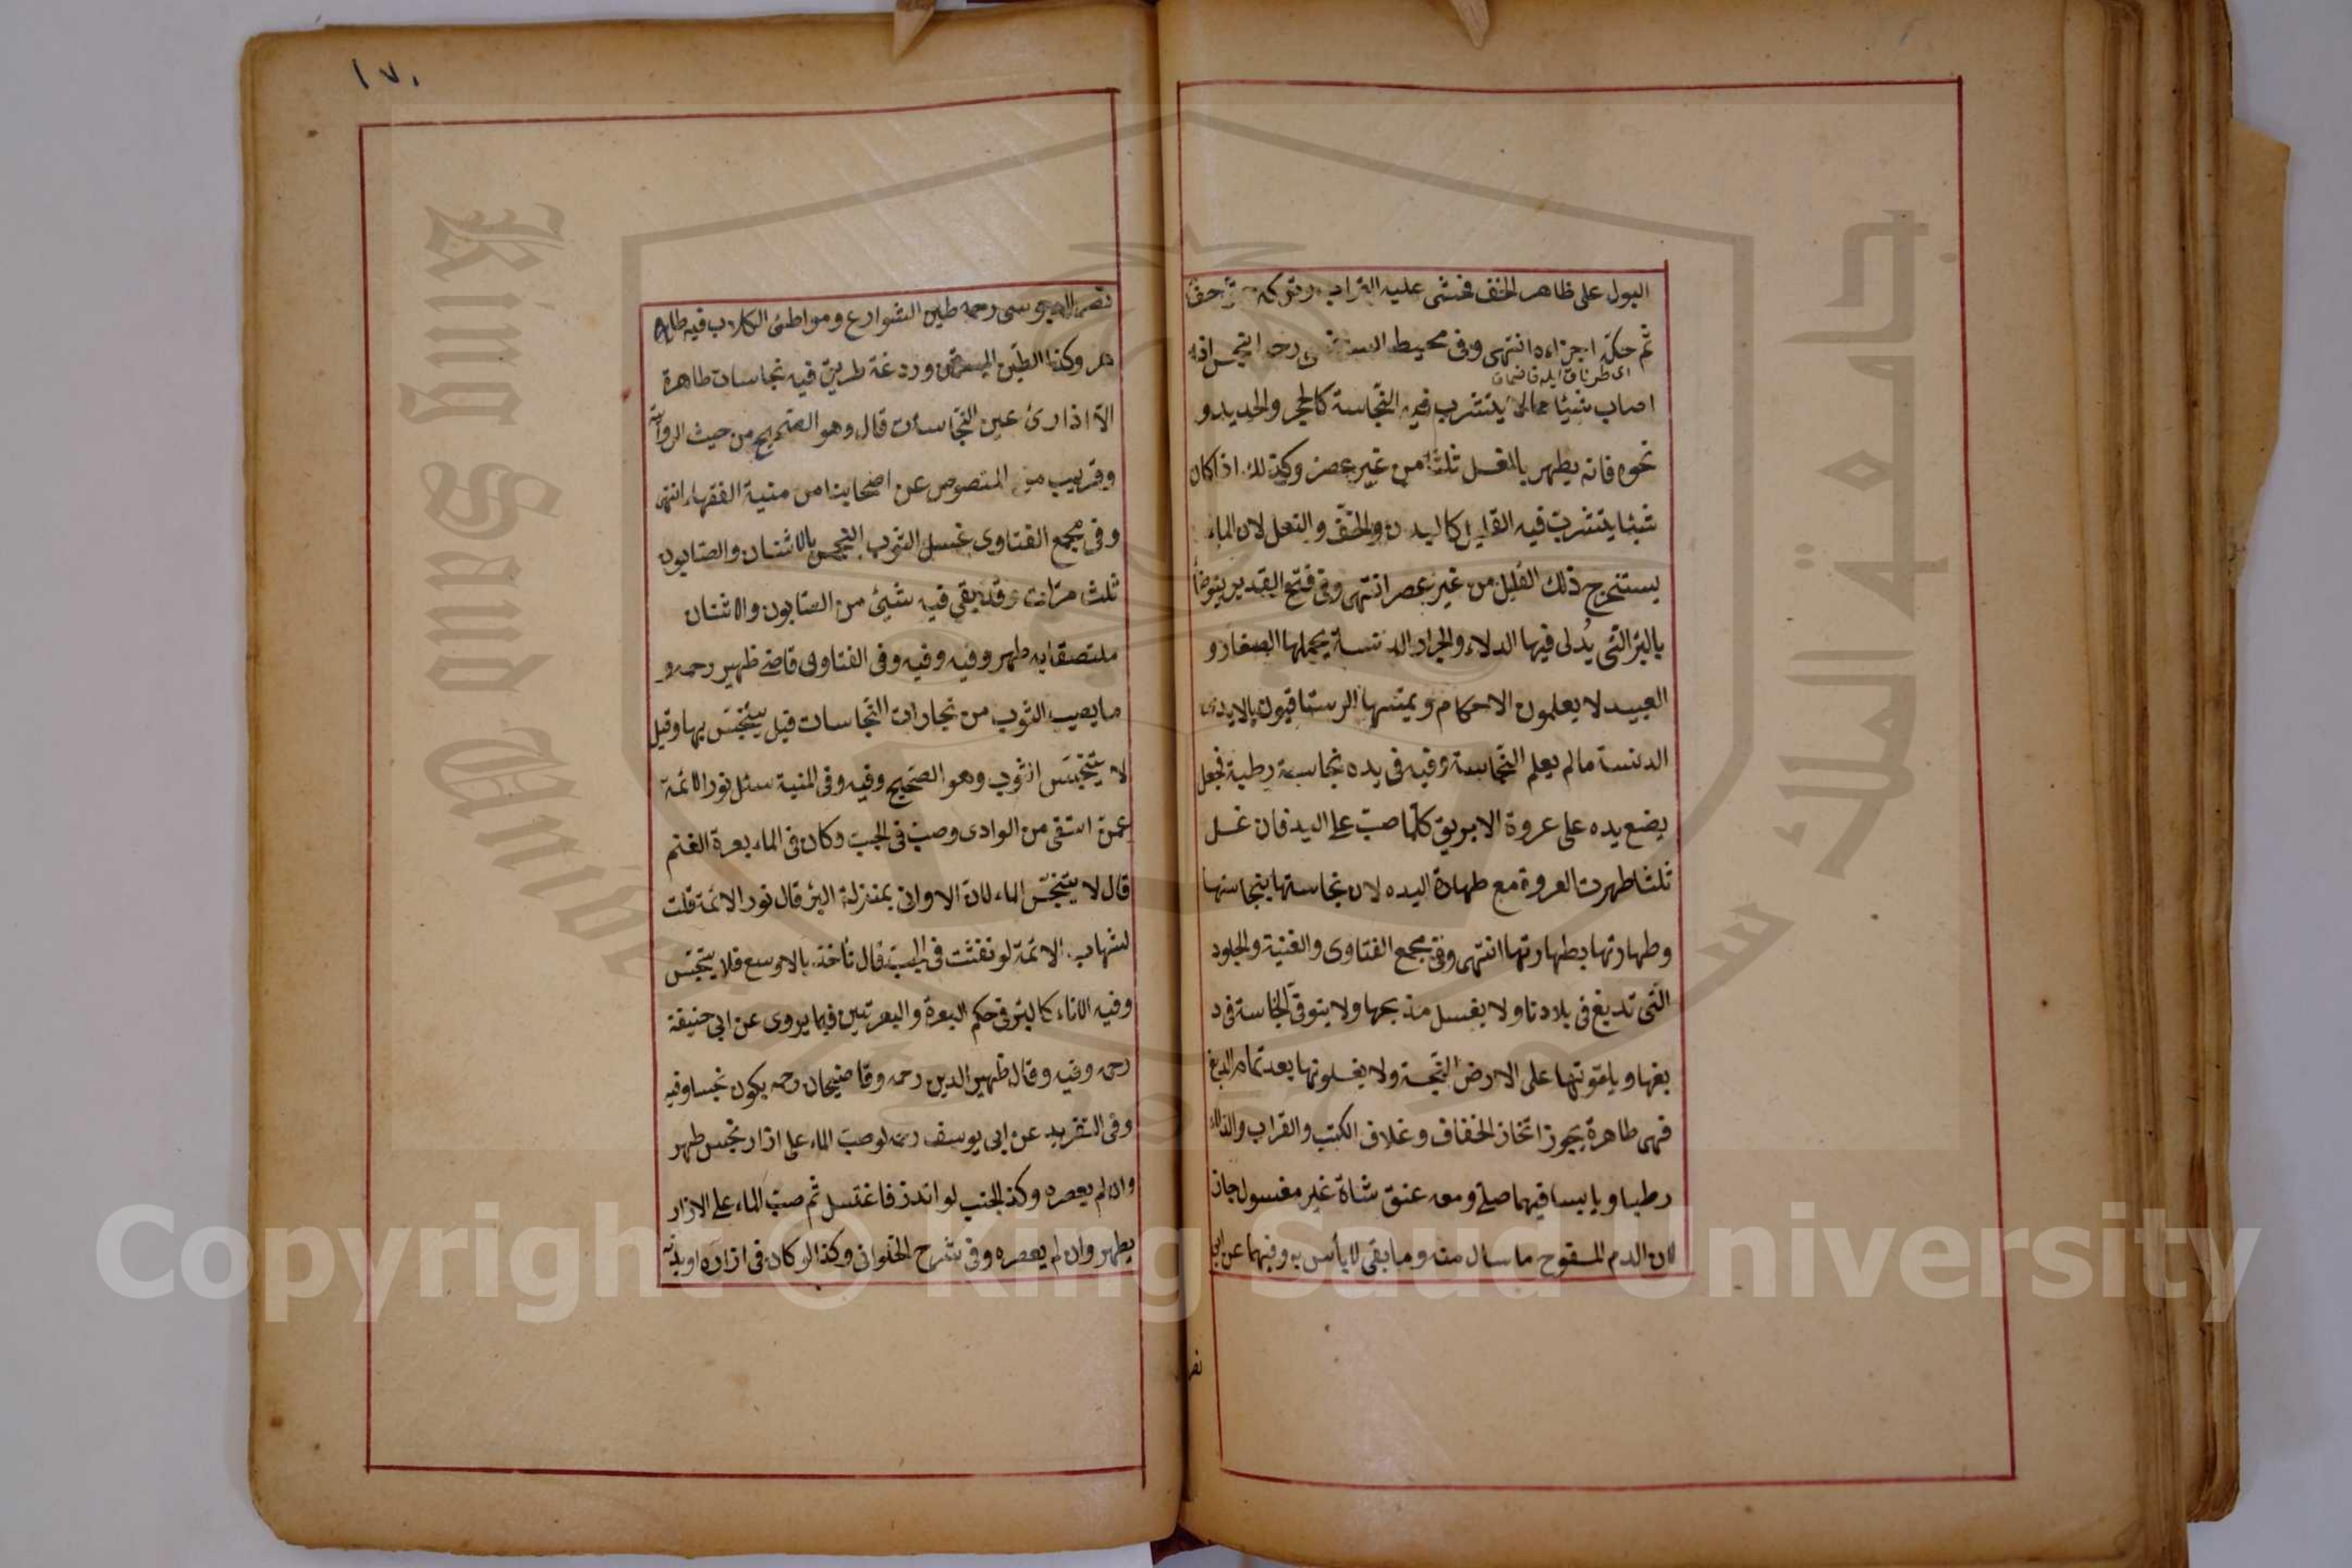 البول على ظاهر الخف فحشى عليه التراب وتركه حتى جف
ثم حكّه اجزاءه انتهى وفى محيط السرخسى رحمه النجس اذا
اصاب شيئا مما لا يتشرب فيه النجاسة كالحجر والحديد و
نحوه فانه يطهر بالغسل ثلثا من غير عصر وكذلك اذا كان
شيئا يتشرب فيه القليل كالبدن والخف والنعل لان الماء
يستخرج ذلك القليل من غير عصر انتهى وفى فتح القدير يتوضأ
بالبئر التى يُدلى فيها الدلاء والجرار الدنسة يحملها الصغار و
العبيد لا يعلمون الاحكام ويمسّها الرستاقيون بالايدى
الدنسة ما لم يعلم النجاسة وفيه فى يده نجاسة رطبة فجعل
يضع يده على عروة الابريق كلما صبّ على اليد فان غسل
ثلثا طهرت العروة مع طهارة اليده لان نجاستها بنجاستها
وطهارتها بطهارتها انتهى وفى مجمع الفتاوى والقنية والجلود
التى تدبغ فى بلادنا ولا يغسل مذبحها ولا يتوقى النجاسة فى د
بغها ويلقونها على الارض النجسة ولا يغسلونها بعد تمام الدبغ
فهى طاهرة يجوز اتخاذ الخفاف وغلاف الكتب والقراب والدلاء
رطبا ويابسا فيهما صلى ومعه عنق شاة غير مغسول جاز
لان الدم المسفوح ما سال منه وما بقى لا بأس به وفيهما عن ابى
نصر
١٧٠
نصر الدبوسى رحمه طين الشوارع ومواطئ الكلاب فيه طا
هر وكذا الطين المسرقن وردغة طريق فيه نجاسات طاهرة
الّا اذا رئ عين النجاسات قال وهو الصحيح من حيث الرواية
وقريب من المنصوص عن اصحابنا من منية الفقهاء انتهى
وفى مجمع الفتاوى غسل الثوب النجس بالاشنان والصابون
ثلث مرّات وقد بقى فيه شيئ من الصابون والاشنان
ملتصقا به طهر وفيه وفيه وفى الفتاوى قاضى ظهير رحمه و
ما يصيب الثوب من بخارات النجاسات قيل يتنجّس بها وقيل
لا يتنجّس الثوب وهو الصحيح وفيه وفى المنية سئل نور الائمة
عمن استقى من الوادى وصبّ فى الجبّ وكان فى الماء بعرة الغنم
قال لا يتنجّس الماء لان الاوانى بمنزلة البئر قال نور الائمة قلت
لشهاب الائمة لو تفتّت فى الجبّ قال نأخذ بالاوسع فلا يتنجّس
وفيه الاناء كالبئر فى حكم البعرة والبعرتين فيما يروى عن ابى حنيفة
رحمه وفيه وقال ظهير الدين رحمه وقاضيخان رحمه يكون نجسا وفيه
وفى التفريد عن ابى يوسف رحمه لو صبّ الماء على ازار نجس طهر
وان لم يعصره وكذا الجنب لو اتزر فاغتسل ثم صبّ الماء على الازار
يطهر وان لم يعصره وفى شرح الحلوانى وكذا لو كان فى ازاره او بدنه
Copyright © King Saud University
King Saud University
جامعة الملك سعود